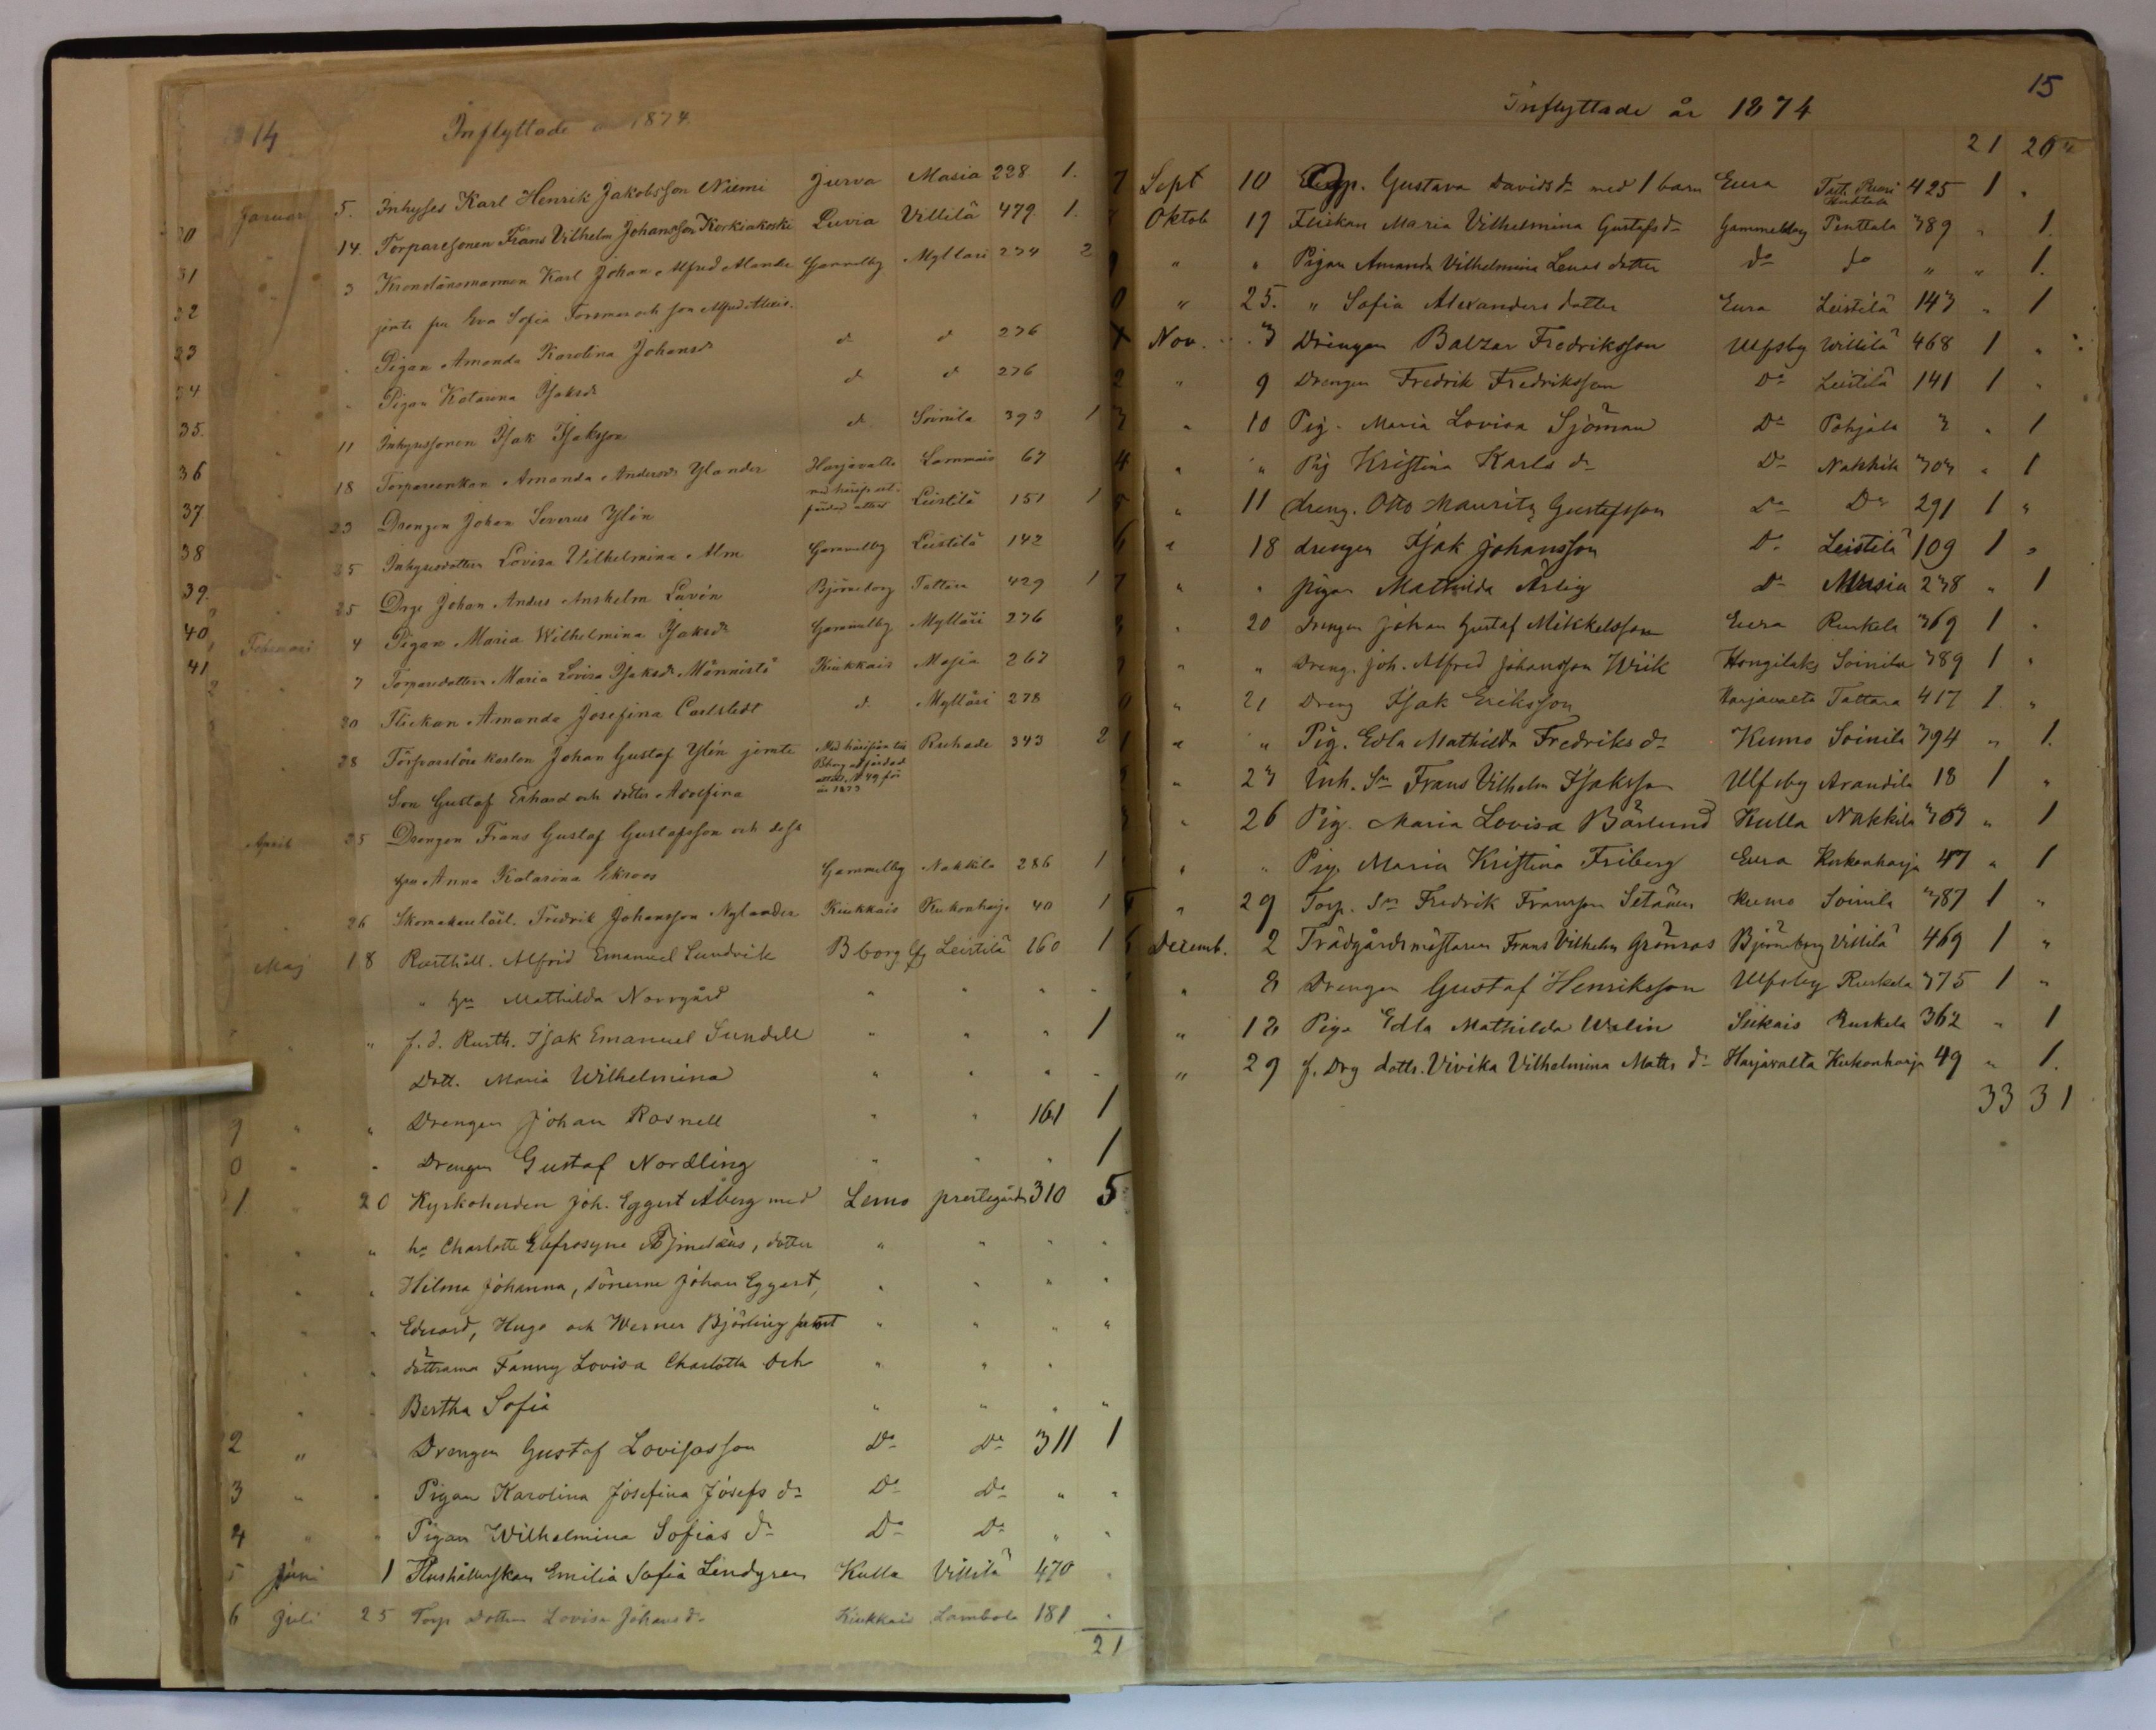 14
Inflyttade år 1874.
Januari 5. Inhyses Karl Henrik Jakobsson Niemi Jurva Masia 228 1.
30 14. Torparesonen Frans Vilhelm Johansson Korkiakoski Luvia Villilä 479. 1.
31 3 Kronolänsmannen Karl Johan Alfred Alander Gammelby Myllari 274 2
32 jemte fru Eva Sofia Forsman och son Alfred Alexis.
33 Pigan Amanda Karolina Johansdr d d 276
34 Pigan Katarina Isaksdr d d 276
35. 11 Inhysessonen Isak Isaksson d Soinila 393 1
36 18 Torpareenkan Amanda Andersdr Ylander Harjavalta Lammais 67
37 23 Drengen Johan Severus Ylén Leistilä 151 1
38 25 Inhysesdottern Lovisa Wilhelmina Alm Gammelby Leistilä 142
39. 25 Drge Johan Anders Anshelm Lavén Björneborg Tattara 429 1
40 Februari 4 Pigan Maria Wilhelmina Isaksdr Gammelby Mylläri 276
41 7 Torparedottern Maria Lovisa Isaksdr Männistö Kiukkais Masia 267
20 Flickan Amanda Josefina Carlstedt d. Mylläri 278
28 Johan Gustaf Ylén jemte Ruhade 343 2
Son Gustaf Erhard och dotter Adolfina
April 25 Drengen Frans Gustaf Gustafsson och dess
hu Anna Katarina Ekroos Gammelby Nakkila 286 1
26 Skomakare Fredrik Johansson Nylander Kiukkais Kukonharja 40 1
Maj 18 Rusthåll. Alfrid Emanuel Sundvik Bborg Leistilä 160 1
" hu Mathilda Norrgård " " " "
" f.d. Rusth. Isak Emanuel Sundell " " " 1
Dott. Maria Wilhelmina " " " "
9 " " Drengen Johan Rosnell " " 161 1
0 " " Drengen Gustaf Nordling " " " 1
1 " 20 Kyrkoherden Joh. Eggert Åberg med Lemo prestegård 310 5
" hu Charlotte Eufrosyne , dotter " " " "
" Hilma Johanna, sönerne Johan Eggert, " " " "
" Eduard, Hugo och Werner Björling samt " " " "
" döttrarna Fanny Lovisa Charlotta och " " "
Bertha Sofia " " " "
2 " Drengen Gustaf Lovisasson Do Do 311 1
3 " " Pigan Karolina Josefina Josefs dr Do Do " "
4 " " Pigan Wilhelmina Sofias dr Do Do " "
5 Juni 1 Hushållerskan Emilia Sofia Lindgren Kulla Villilä 470 "
6 Juli 25 Torp dottern Lovisa Johans dr Kiukkais Lambola 181 "
21
15
Inflyttade år 1874
21 26
7 Sept 10 Gustava Davids dr med 1 barn Eura 425 1 "
8 Oktob 17 Flickan Maria Vilhelmina Gustafs dr Gammelby Penttala 389 " 1.
9 " " Pigan Amanda Vilhelmina Lenas dotter do do " " 1.
0 " 25. " Sofia Alexanders dotter Eura Leistilä 143 " 1
Nov. 3 Drengen Balzar Fredriksson Ulfsby Willilä 468 1 "
2 " 9 Drengen Fredrik Fredriksson Do Leistilä 141 1 "
3 " 10 Pig. Maria Lovisa Sjöman Do Pohjala 3 " 1
4 " " Pig Kristina Karls dr Do Nakkila 303 " 1
5 " 11 dreng. Otto Mauritz Gustafsson Do Do 291 1 "
6 " 18 drengen Isak Johansson Do Leistilä 109 1 "
7 " " pigan Mathilda Ärlig Do Masia 238 " 1
8 " 20 Drengen Johan Gustaf Mikkelsson Eura Ruskela 369 1 "
9 " " Dreng. Joh. Alfred Johansson Wiik Hongilaks Soinila 389 1 "
0 " 21 Dreng Isak Eriksson Harjavalta Tattara 417 1. "
1 " " Pig. Edla Mathilda Fredriks dr Kumo Soinila 394 " 1.
2 " 23 Inh. Sn Frans Vilhelm Isaksson Ulfsby Arandila 18 1 "
3 " 26 Pig. Maria Lovisa Bärlund Kulla Nakkila 303 " 1
" " Pig. Maria Kristina Friberg Eura Kukonharja 47 " 1
5 " 29 Torp. Sn Fredrik Fransson Setänen Kumo Soinila 387 1 "
6 Decemb. 2 Trädgårdsmästaren Frans Vilhelm Grönroos Björneborg Villilä 469 1 "
" 8 Drengen Gustaf Henriksson Ulfsby Ruskela 375 1 "
" 12 Piga Edla Mathilda Walin Siikais Ruskela 362 " 1
" 29 f. Drg dottr. Vivika Vilhelmina Matts dr Harjavalta Kukonharja 49 " 1.
33 31